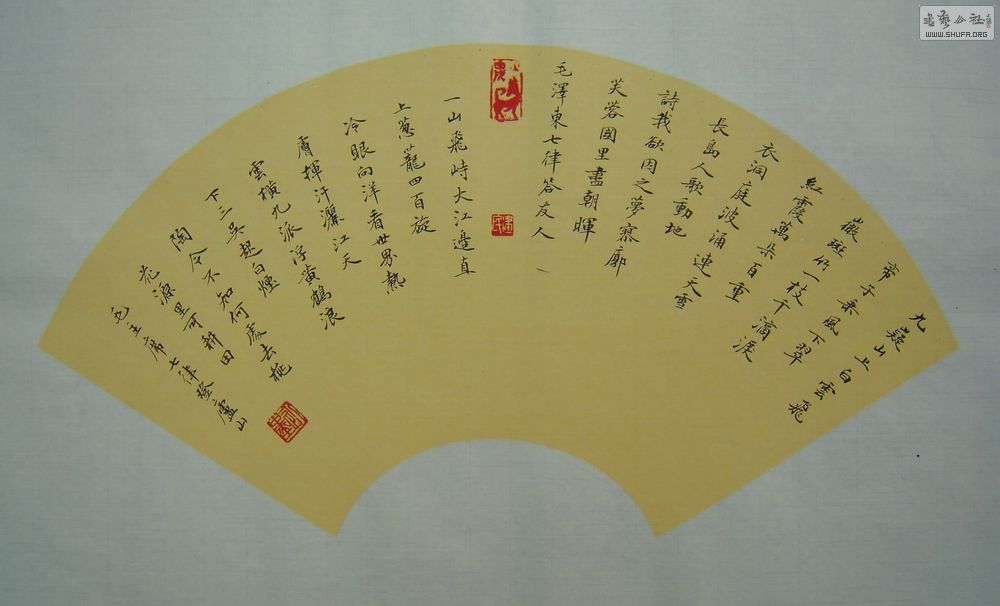 九嶷山上白雲飛
帝子乘風下翠
微斑竹一枝千滴淚
紅霞萬朵百重
衣洞庭波涌連天雪
長島人歌動地
詩我欲因之夢寥廓
芙蓉國里盡朝暉
毛澤東七律答友人
一山飛峙大江邊直
上蔥蘢四百旋
冷眼向洋看世界熱
膚揮汗灑江天
雲橫九派浮黃鶴浪
下三吳起白煙
陶令不知何處去桃
花源里可耕田
毛主席七律登廬山
書藝公社
WWW.SHUFA.ORG